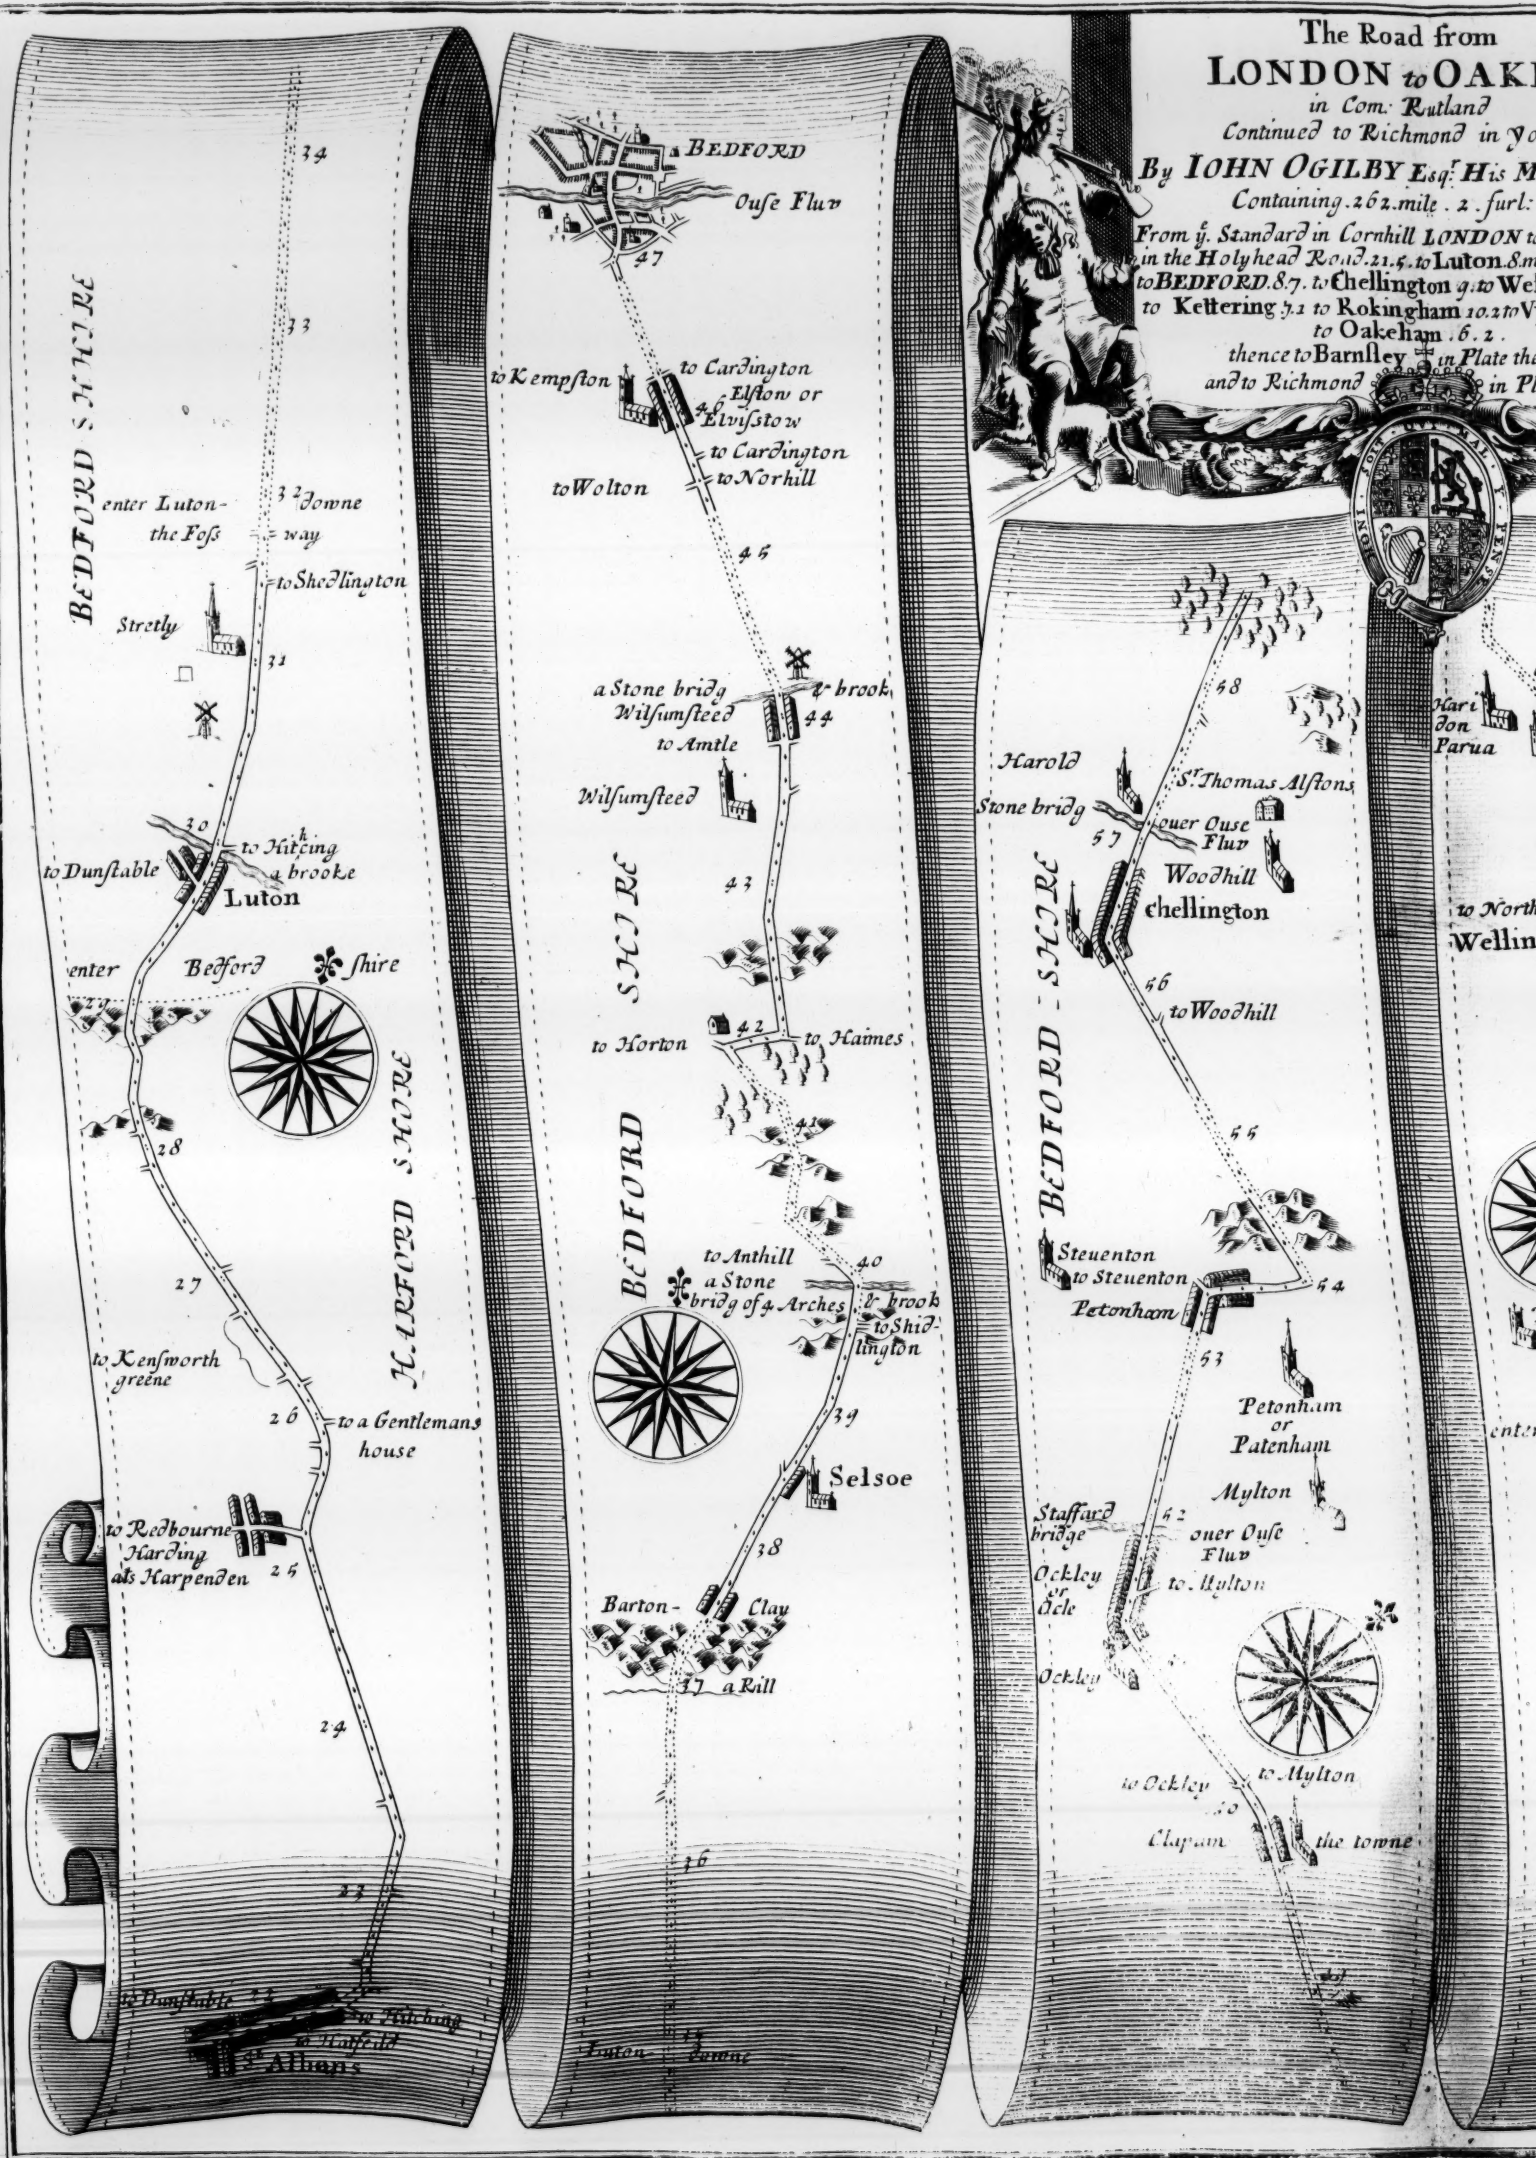 The Road from
LONDON to OAKE
in Com: Rutland
Continued to Richmond in Yo
By IOHN OGILBY Esqr. His M
Containing .262. mile . 2 . furl:
From ye. Standard in Cornhill LONDON to
in the Holyhead Road. 21.5. to Luton. 8.m
to BEDFORD. 8.7. to Chellington 9. to Wel
to Kettering 7.1 to Rokingham 10.2 to V
to Oakeham . 6. 2 .
thence to Barnsley in Plate the
and to Richmond in Pl
HONI · SOIT · QUI MAL · Y · PENSE
34
33
BEDFORD SHIRE
32
enter Luton- downe
the Foſs way
to Shedlington
Stretly
31
30
to Hitching
to Dunſtable a brooke
Luton
enter Bedford ſhire
29
28
HARFORD SHIRE
27
to Kenſworth
greene
26
to a Gentlemans
house
to Redbourne
Harding
als Harpenden
25
24
23
to Dunſtable 22
to Hitching
to Hatfeild
St. Albans
BEDFORD
Ouſe Fluv
47
to Kempſton
to Cardington
46
Elſtow or
Elviſstow
to Cardington
to Wolton
to Norhill
45
a Stone bridg & brook
Wilſumſteed
44
to Amtle
Wilſumſteed
43
BEDFORD SHIRE
42
to Horton
to Haimes
41
40
to Anthill
a Stone
bridg of 4 Arches & brook
to Shid-
lington
39
Selsoe
38
Barton- Clay
37 a Rill
36
Luton- 35 downe
58
Harold
Sr. Thomas Alſtons
Stone bridg
ouer Ouse
Fluv
57
Woodhill
Chellington
56
to Woodhill
BEDFORD - SHIRE
55
Steuenton
to Steuenton
54
Petonham
53
Petonham
or
Patenham
Mylton
52
Stafford
bridge
ouer Ouſe
Fluv
Ockley
or
Ocle
to Mylton
Ockley
to Ockley
to Mylton
50
Clapam
the towne
Hari
don
Parua
to North
Wellin
enter